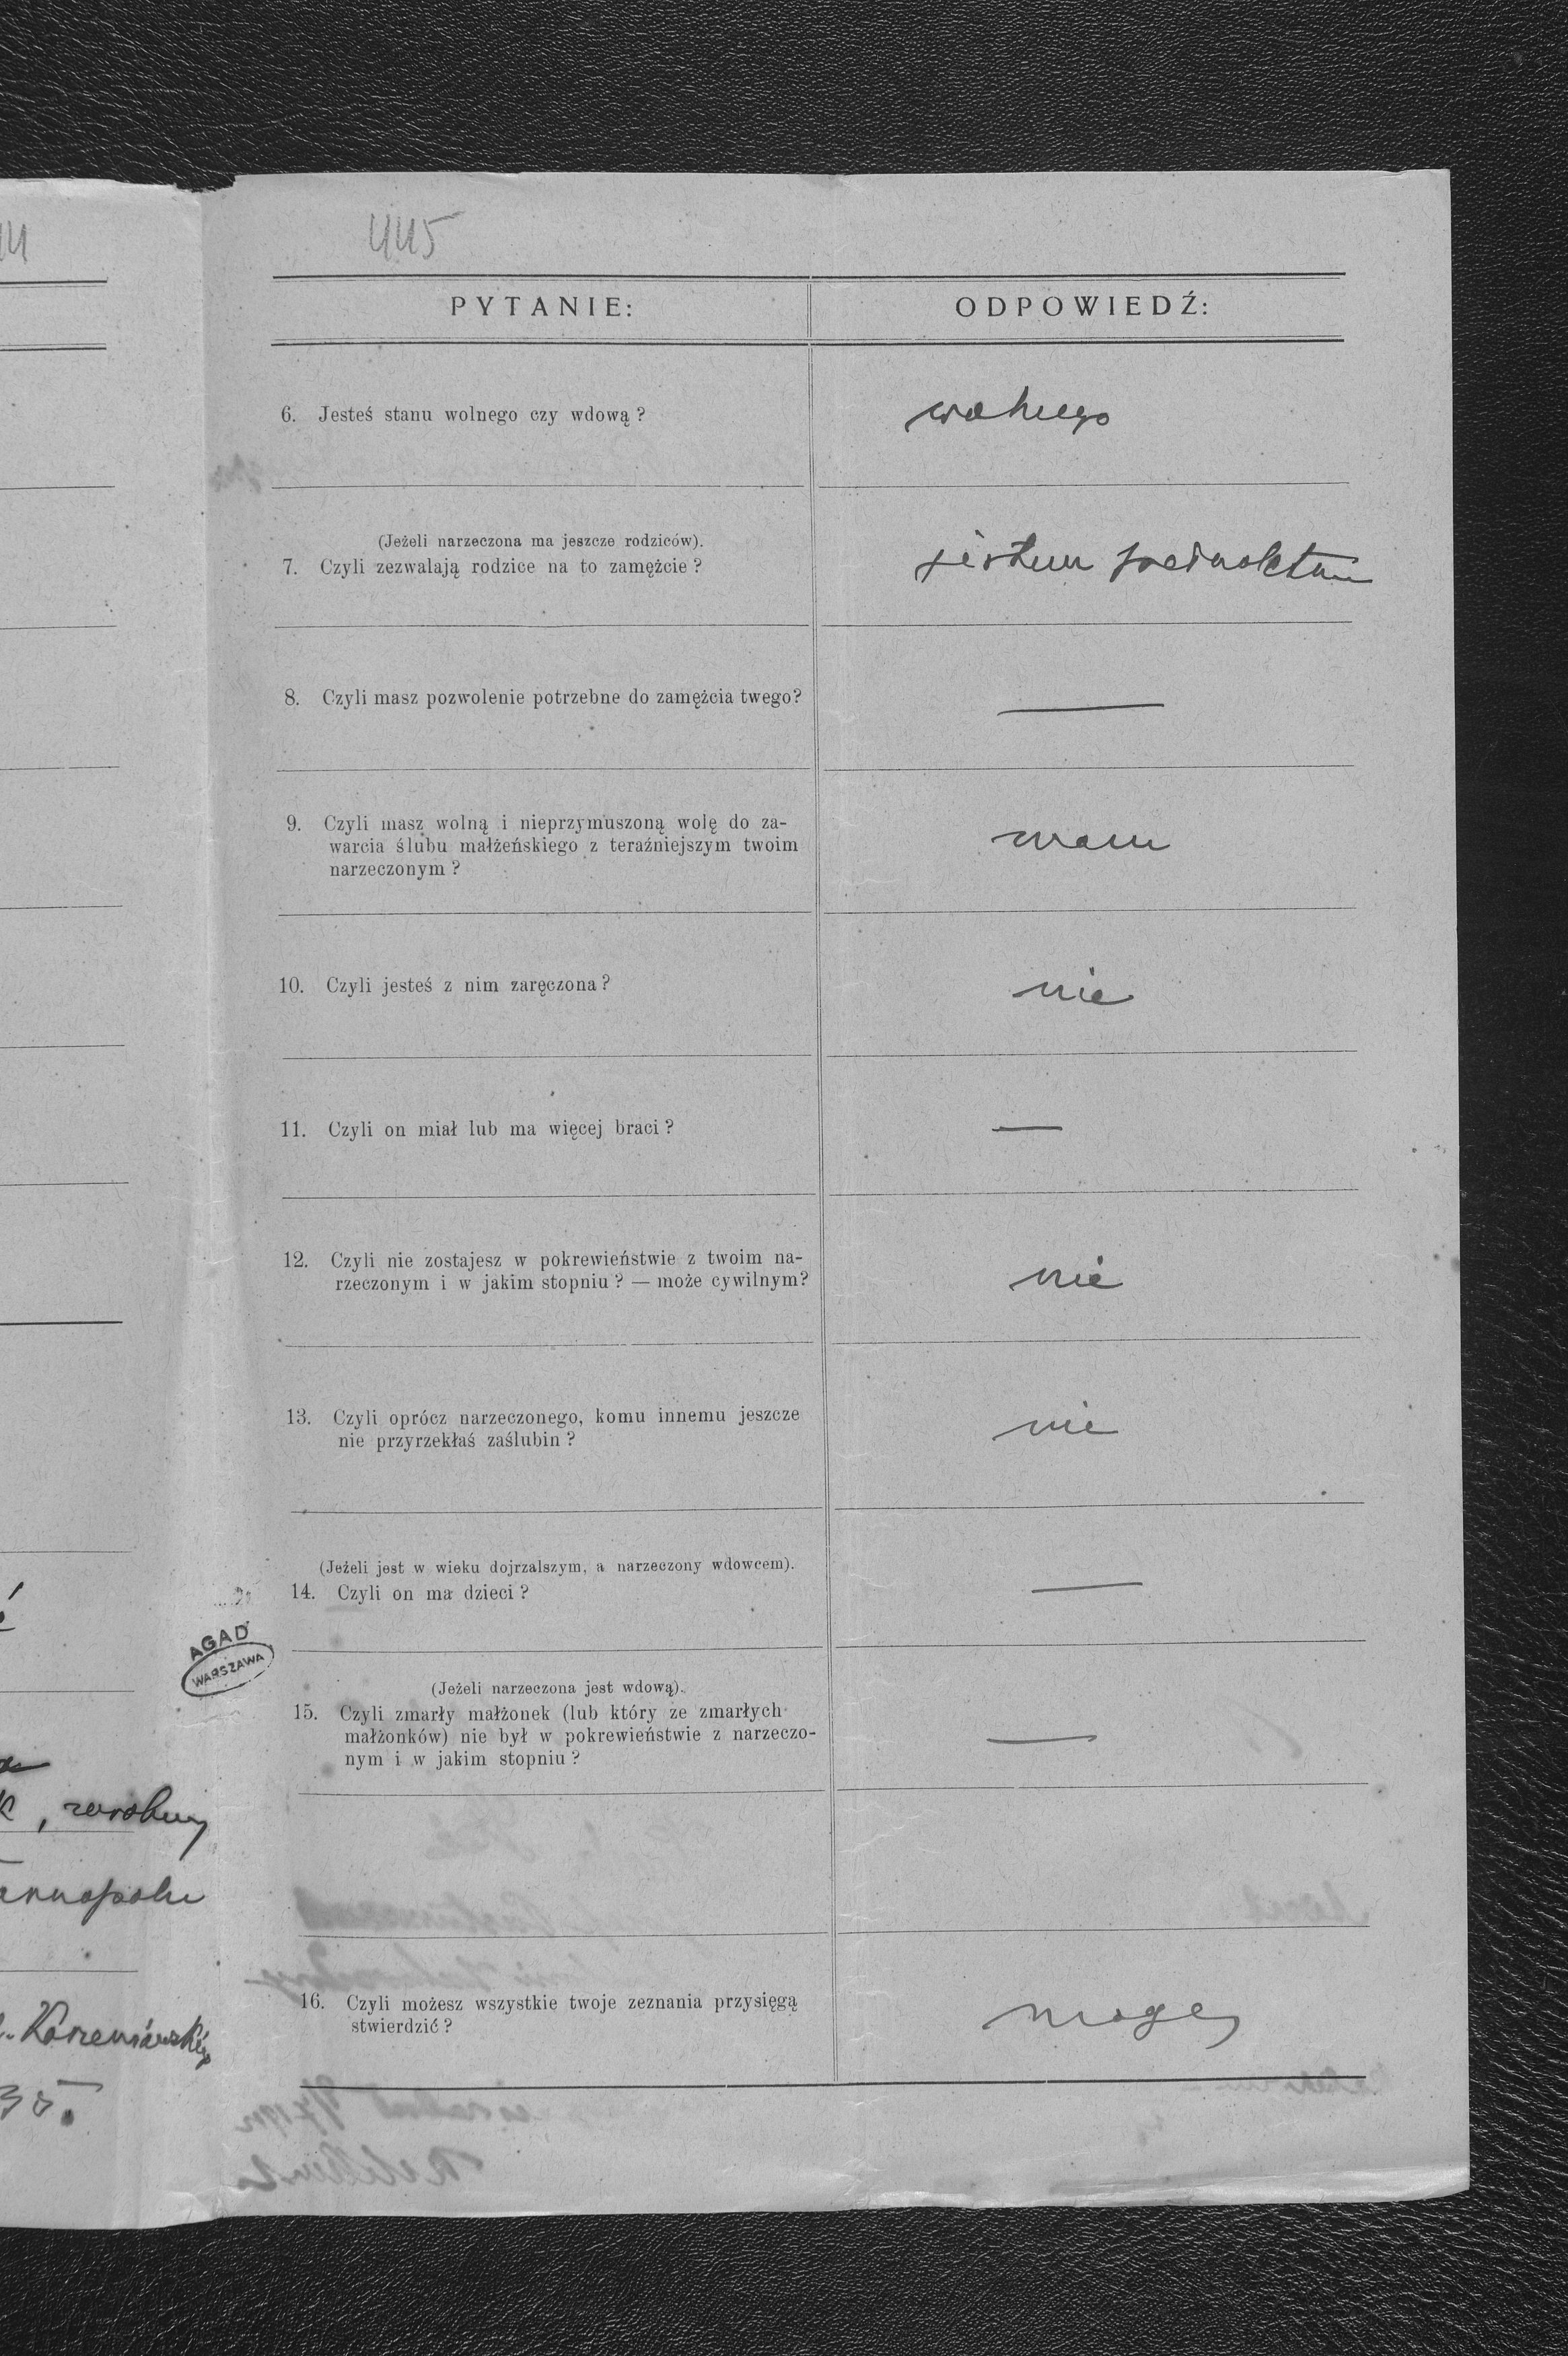 445
PYTANIE: ODPOWIEDŹ:
6. Jesteś stanu wolnego czy wdową? wolnego
(Jeżeli narzeczona ma jeszcze rodziców).
7. Czyli zezwalają rodzice na to zamężcie? jestem
8. Czyli masz pozwolenie potrzebne do zamężcia twego? —
9. Czyli masz wolną i nieprzymuszoną wolę do za-
warcia ślubu małżeńskiego z teraźniejszym twoim
narzeczonym? mam
10. Czyli jesteś z nim zaręczona? nie
11. Czyli on miał lub ma więcej braci? —
12. Czyli nie zostajesz w pokrewieństwie z twoim na-
rzeczonym i w jakim stopniu? — może cywilnym? nie
13. Czyli oprócz narzeczonego, komu innemu jeszcze
nie przyrzekłaś zaślubin? nie
(Jeżeli jest w wieku dojrzalszym, a narzeczony wdowcem).
14. Czyli on ma dzieci? —
AGAD
WARSZAWA
(Jeżeli narzeczona jest wdową).
15. Czyli zmarły małżonek (lub który ze zmarłych
małżonków) nie był w pokrewieństwie z narzeczo-
nym i w jakim stopniu? —
16. Czyli możesz wszystkie twoje zeznania przysięgą
stwierdzić? mogę